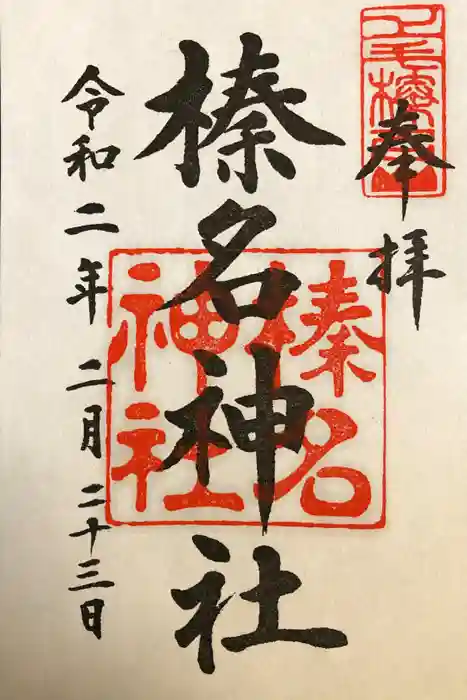 奉拝
榛名神社
令和二年 二月 二十三日
榛名
神社